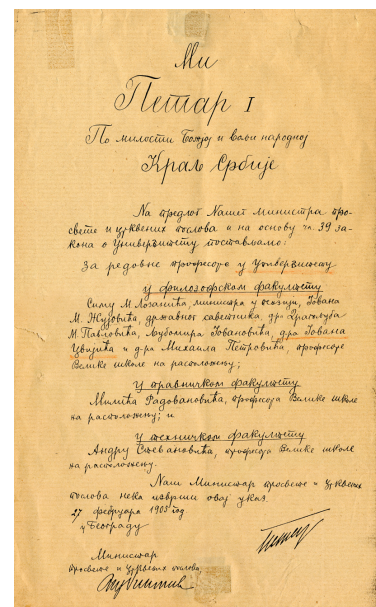 Ми
Петар I
По милости Божјој и вољи народној
Краљ Србије
На предлог Нашег Министра про-
свете и црквених послова и на основу чл. 39 за-
кона о Универзитету постављамо:
За редовне професоре у Универзитету
у филозофском факултету
Симу М. Лозанића, министра у оставци, Јована
М. Жујовића, државног саветника, др-а Драгољуба
М. Павловића, Љубомира Јовановића, др-а Јована
Цвијића и др-а Михаила Петровића, професоре
Велике школе на расположењу;
у правничком факултету
Милића Радовановића, професора Велике школе
на расположењу; и
у техничком факултету
Андру Стевановића, професора Велике школе
на расположењу.
Наш Министар просвете и црквених
послова нека изврши овај указ.
27 фебруара 1905 год
у Београду
Петар
Министар
просвете и црквених послова,